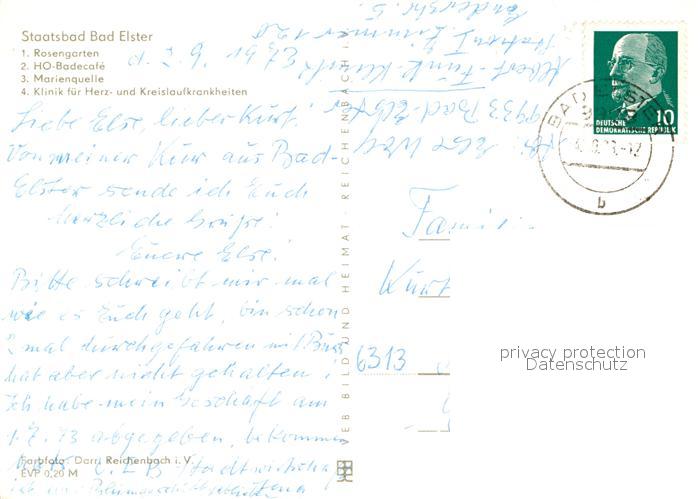 Staatsbad Bad Elster
1. Rosengarten
2. HO-Badecafé
3. Marienquelle
4. Klinik für Herz- und Kreislaufkrankheiten
d. 2. 9. 1973
Liebe Else, lieber Kurt!
Von meiner Kur aus Bad-
Elster sende ich Euch
herzliche Grüße!
Euere Else!
Bitte schreibt mir mal
wie es Euch geht, bin schon
2 mal durchgefahren mit Bus
hat aber nicht gehalten!
Ich habe mein Geschäft am
1.7.73 abgegeben, bekommen
Farbfoto: Darr, Reichenbach i. V.
EVP 0,20 M
VEB BILD UND HEIMAT · REICHENBACH i. V.
9933 Bad-Elster
Albert-Funk-Klinik
Station I Zimmer 120
BAD ELSTER
b
DEUTSCHE
DEMOKRATISCHE REPUBLIK
10
Famili
Kurt
6313
privacy protection
Datenschutz